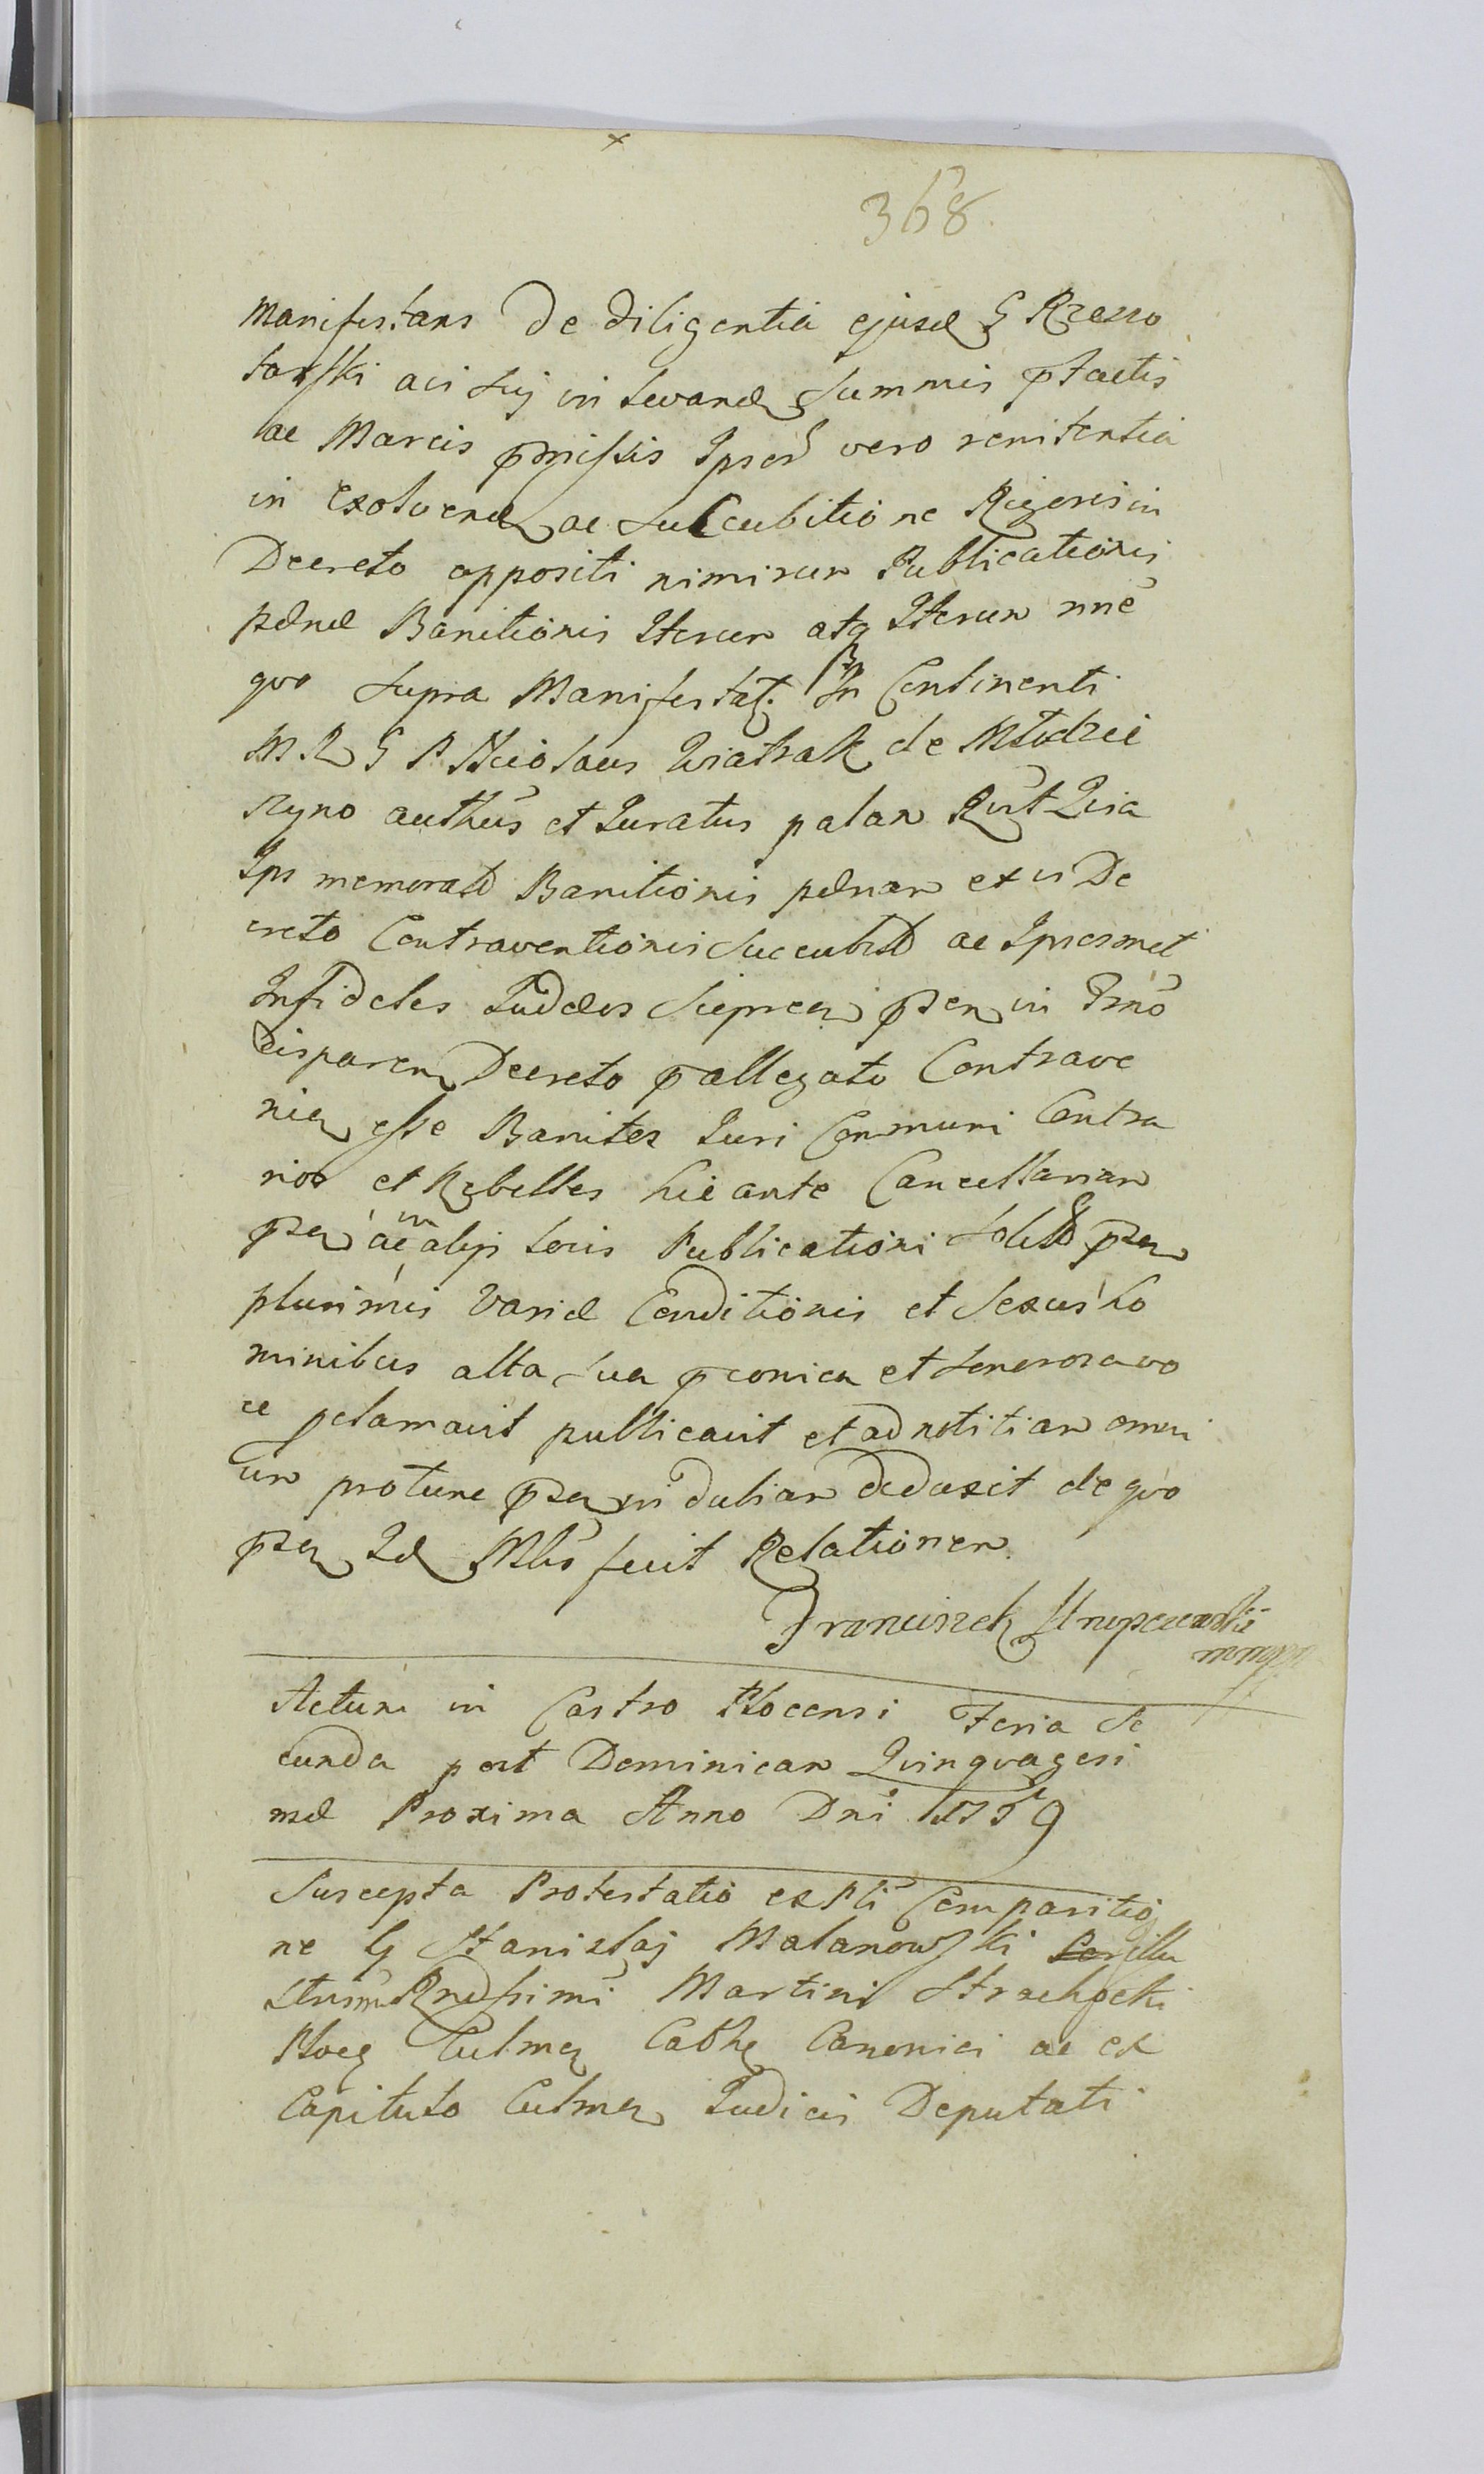 368.
Manifestans De diligentia ejusd G Rzeszo
tarski aci sui in levand summis ptactis
ac Marcis pmissis Ipsor vero renitentia
in exolvend ac succubitione Rigoris in
Decreto oppositi nimirum Publicationis
pænæ Banitionis Iterum atq Iterum nne
quo supra Manifestat. In Continenti
M R G P Nicolaus Wiatrak de Młodzie
szyno authus et Juratus palam Rvit Quia
Ips memorat Banitionis pænam ex vi De
creto Contraventionis succubit ac Ipsosmet
Infideles Judæos Siepreen psen in Trno
eisparen Decreto pallegato Contrave
nien esse Banitos Juri Communi Contra
rios et Rebelles hic ante Cancellariam
psen ac in alijs locis Publicationi solit psen
plurimis Variæ Conditionis et Sexus ho
minibus alta sua pconica et sonorosa vo
ce pclamavit publicavit et ad notitiam omni
um pro tunc psen in dubiam deduxit de quo
psen Id Mlis fecit Relationem.
Franciszek
mmpp
Actum in Castro Plocensi Feria Se
cunda post Dominicam Quinquagesi
mæ Proxima Anno Dni 1759
Suscepta Protestatio ex Pli Comparitio
ne G Stanislaj Malanowski Illu
strium Rndssimi Martini Strachocki
Ploc Culmen Cathe Canonici ac ex
Capitulo Culmen Judicis Deputati